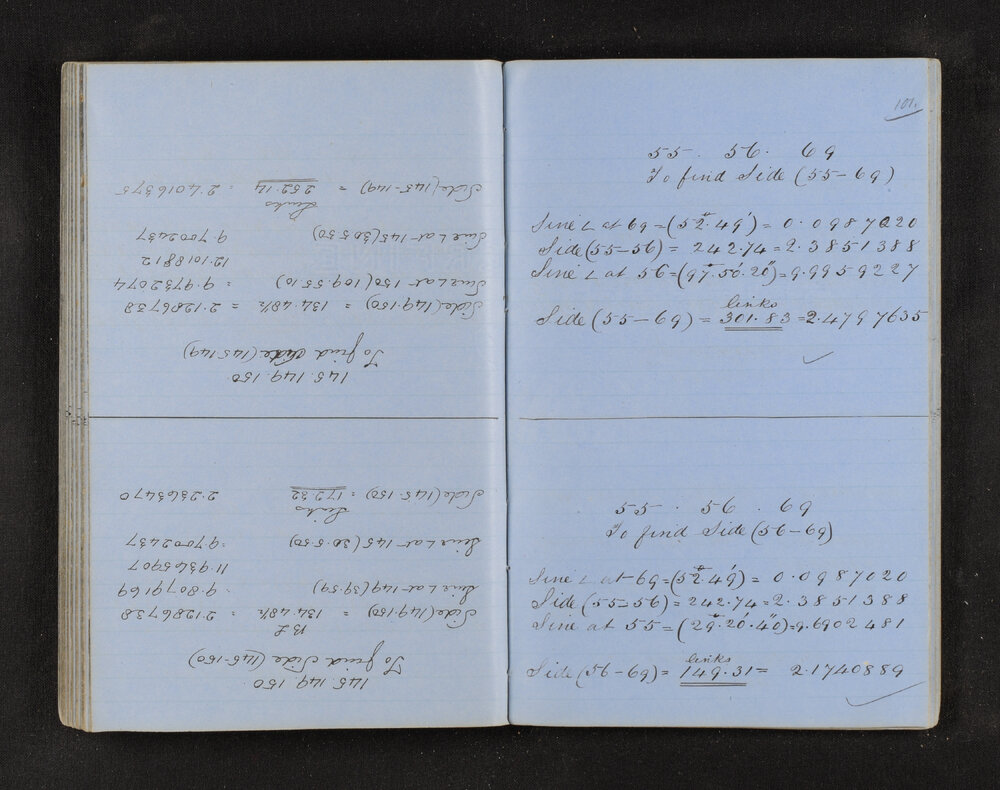 145 149 150
To find Side (145-150)
BL
Side (149.150) = 134.48½ = 2.1286738
Sine L at 149 (39.59) = 9.8079169
11.9365907
Sine L at 145 (30.5.50) = 9.7002437
Links
Side (145.150) = 172.32 2.2363470
145.149.150
To find Side (145.149)
Side (149.150) = 134.48½ = 2.1286738
Sine L at 150 (109.55.10) = 9.9732074
12.1018812
Sine L at 145 (30.5.50) 9.7002437
Links
Side (145.149) = 252.14 = 2.4016375
101.
55 . 56 . 69
To find Side (55-69)
Sine ∠ at 69 = (52°.49') = 0.0987020
Side (55-56) = 242.74 = 2.3851388
Sine ∠ at 56 = (97°.50'.20") = 9.9959227
links
Side (55-69) = 301.83 = 2.4797635
55 . 56 . 69
To find Side (56-69)
Sine ∠ at 69 = (52°.49') = 0.0987020
Side (55-56) = 242.74 = 2.3851388
Sine at 55 = (29°.20'.40") = 9.6902481
links
Side (56-69) = 149.31 = 2.1740889